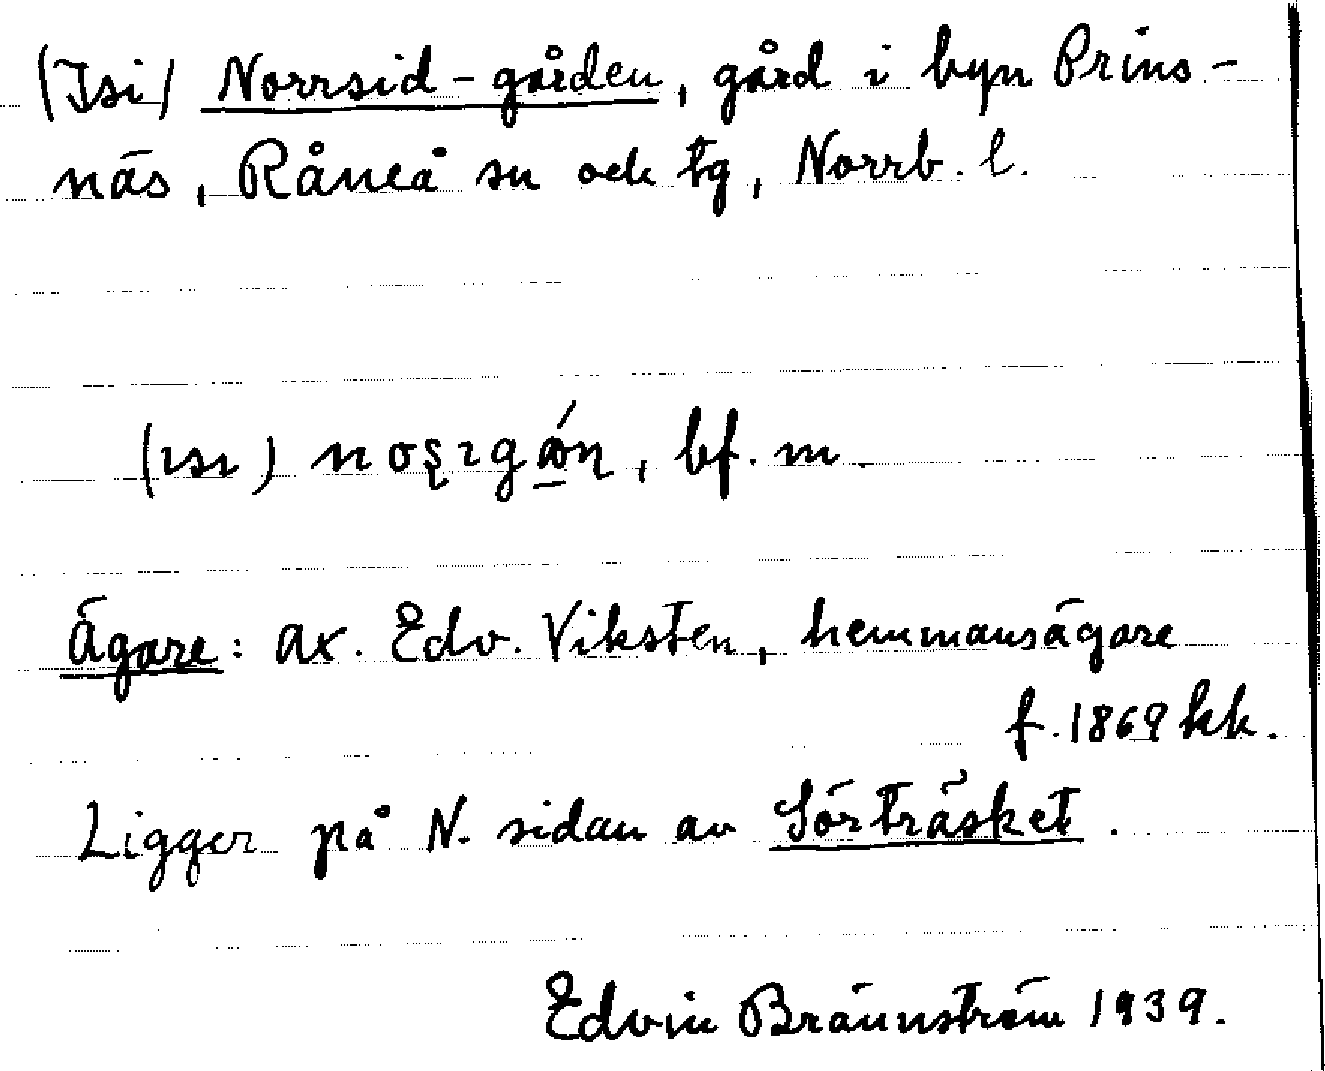 (Isi) Norrsid-gården, gård i byn Prins-
näs, Råneå sn och tg, Norrb. l.
(ısı) bf. m.
Ägare: Ax. Edv. Viksten, hemmansägare
f. 1869 kk.
Ligger på N. sidan av Sörträsket.
Edvin Brännström 1939.